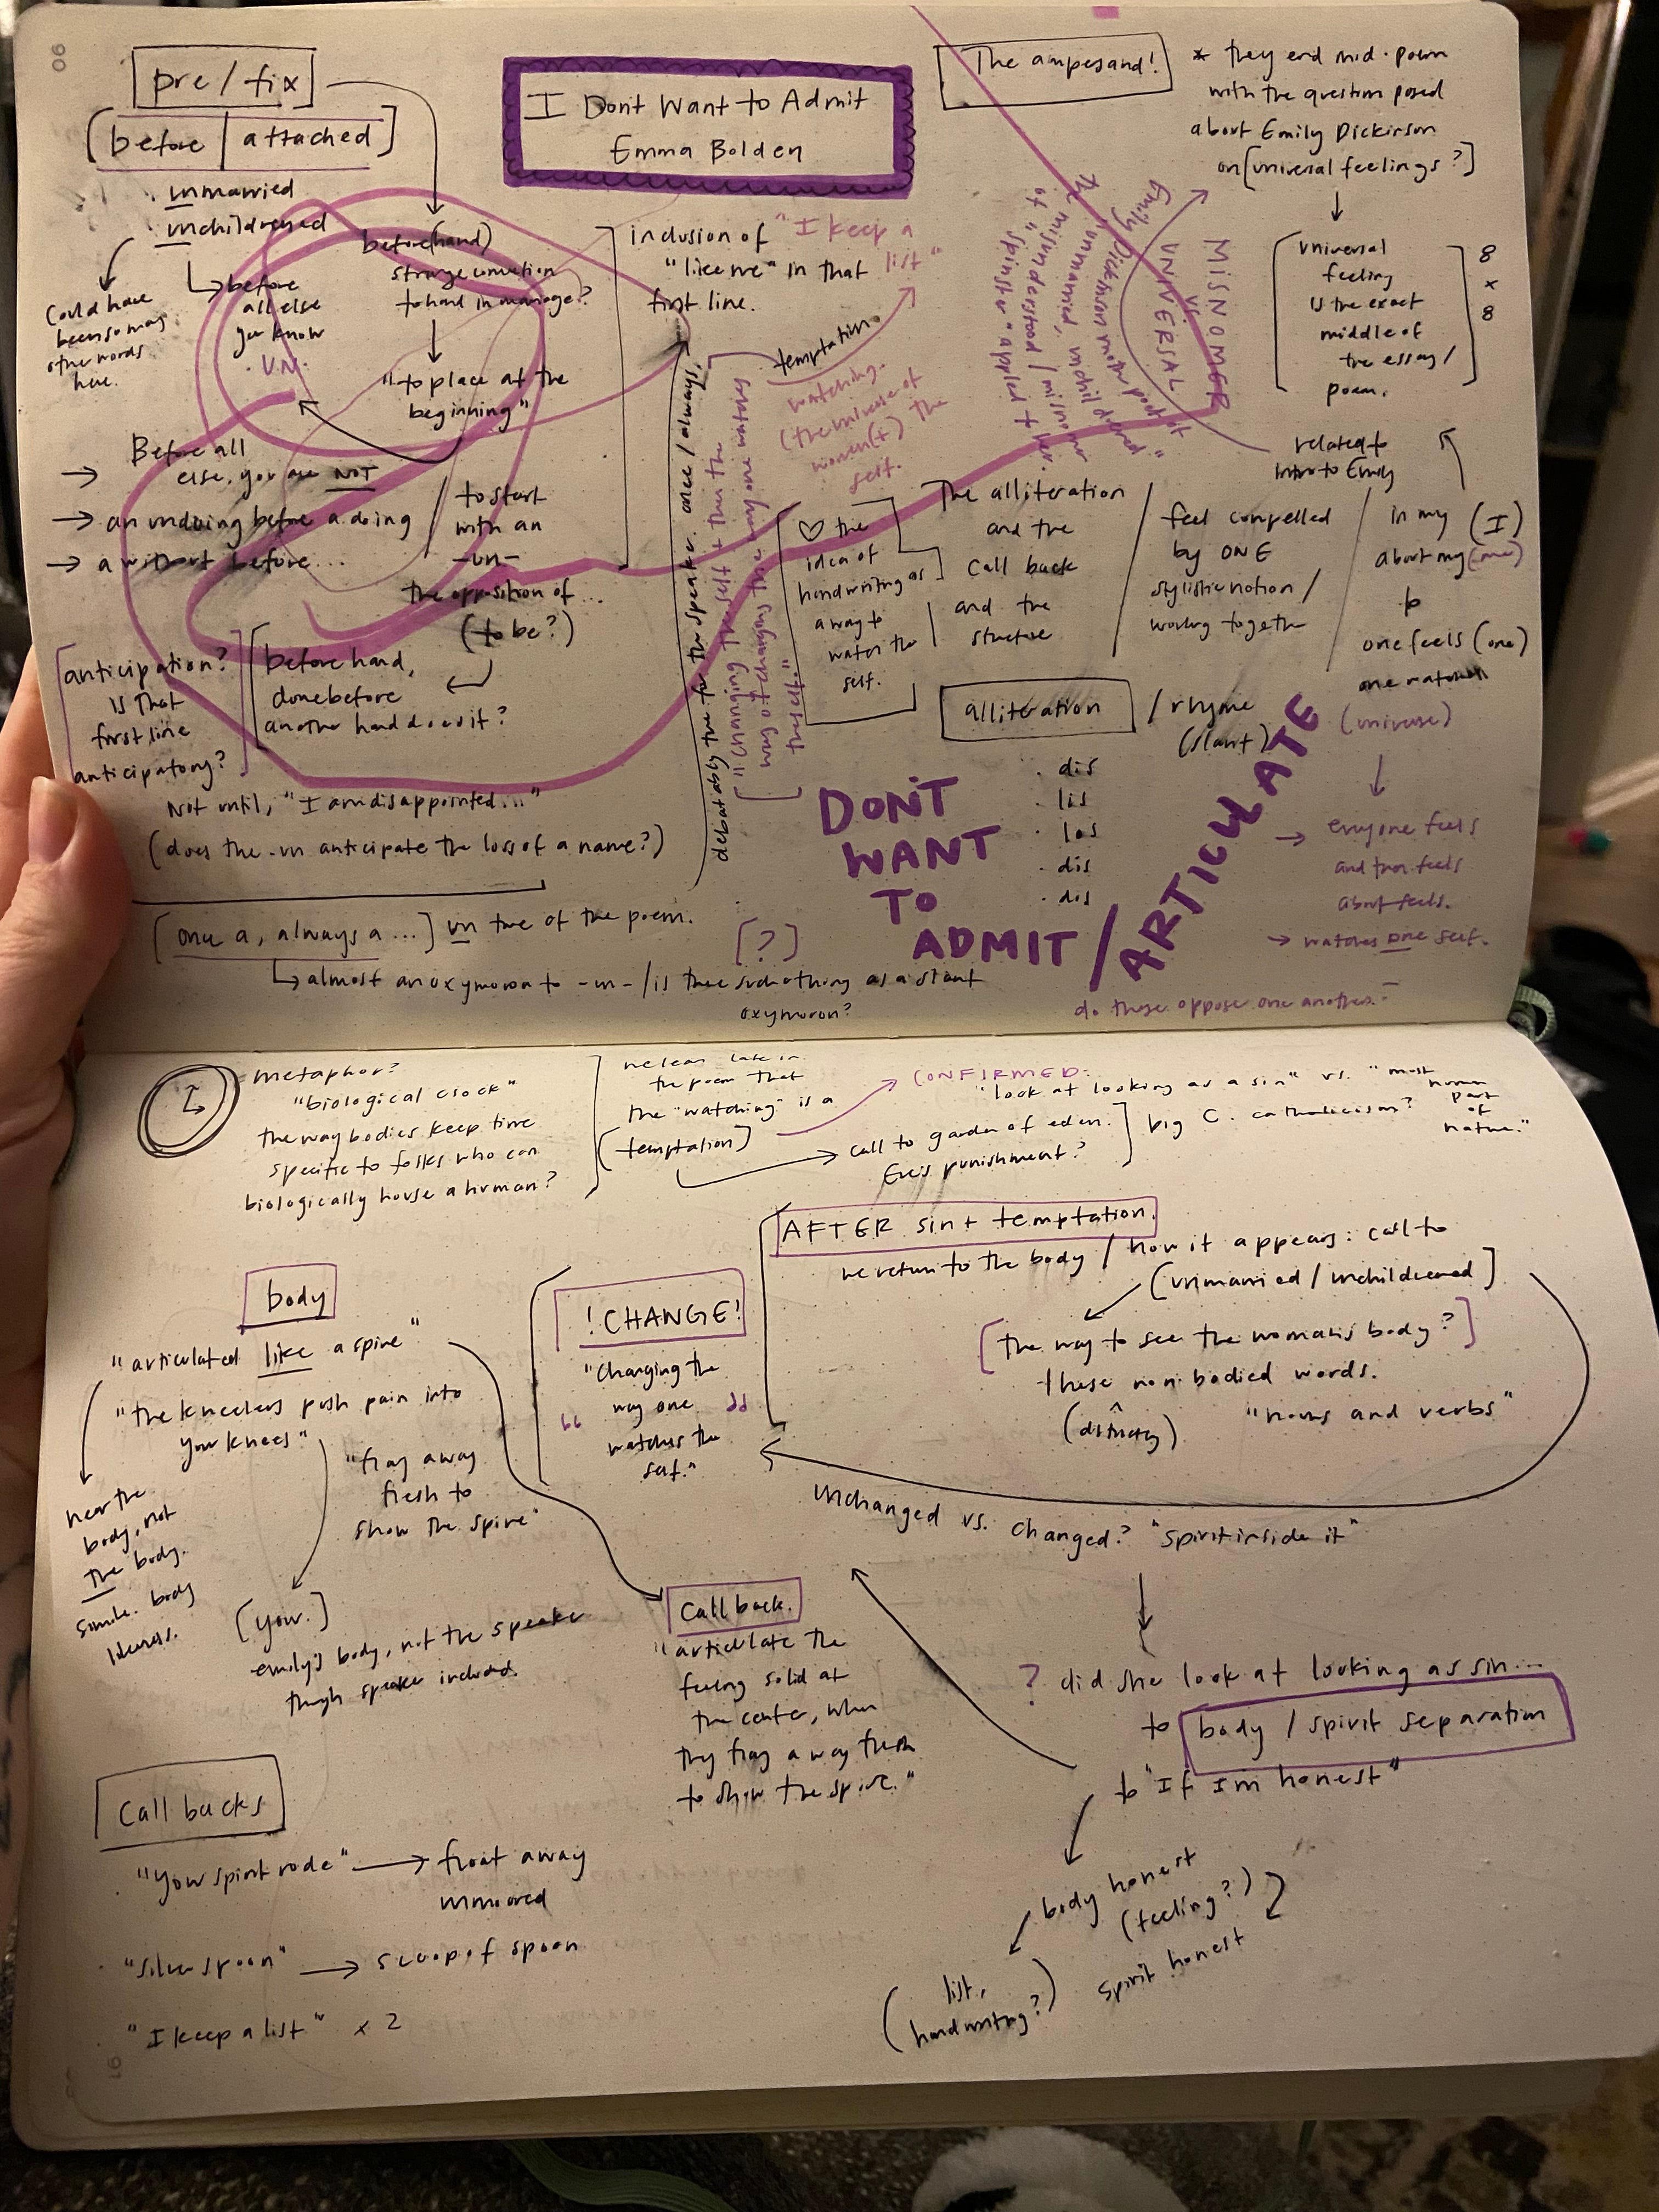 90
pre/fix
[before | attached]
unmarried
unchildrened
could have
been so many
other words
here.
before
all else
you know
UN.
before(hand)
strange connection
to hand in manage?
"to place at the
beginning"
Before all
→ else, you are NOT
→ an undoing before a doing
→ a without before...
to start
with an
-un-
the opposition of...
(to be?)
before hand,
done before
another hand does it?
[anticipation?
is that
first line
anticipatory?]
Not until, "I am disappointed..."
(does the -un anticipate the loss of a name?)
[once a, always a...] un true of the poem.
↳ almost an oxymoron to -un- / is there such a thing as a slant
oxymoron?
[?]
I Dont Want to Admit
Emma Bolden
inclusion of "I keep a
"like me" in that list"
first line.
temptation.
watching.
(the universe of
women(+) the
self.
debatably true for the speaker. once/always.
["changing the self + then the
way of changing the way one watches
the self."]
♡ the
idea of
handwriting as
a way to
watch the
self.
The ampersand!
* they end mid-poem
with the question posed
about Emily Dickinson
on [universal feelings?]
↓
universal
feeling
is the exact
middle of
the essay/
poem.
8
x
8
MISNOMER
vs.
UNIVERSAL
Emily Dickinson
unmarried, unchildrened"
misunderstood / misnomer
of "spinster" applied to her.
related to
intro to Emily
The alliteration
and the
call back
and the
structure
feel compelled
by ONE
stylistic notion /
working together
in my (I)
about my (me)
to
one feels (one)
one watches
(universe)
↓
→ everyone feels
and then feels
about feels.
→ watches one self.
alliteration / rhyme
(slant)
· dis
· lis
· los
· dis
· dis
DON'T
WANT
TO
ADMIT / ARTICULATE
do these oppose one another?
metaphor?
"biological clock"
the way bodies keep time
specific to folks who can
biologically house a human?
we learn late in
the poem that
the "watching" is a
(temptation)
CONFIRMED:
"look at looking as a sin" vs. "most
human
part
of
nature."
call to garden of eden.
Eve's punishment?
big C. catholicism?
AFTER sin + temptation.
we return to the body / how it appears: call to
(unmarried / unchildrened]
[the way to see the woman's body?]
these non bodied words.
"nouns and verbs"
body
"articulated like a spine"
"the kneelers push pain into
your knees"
"fray away
flesh to
show the spine"
near the
body, not
the body.
simile. body
likeness.
[your.]
emily's body, not the speaker
though speaker included.
!CHANGE!
"changing the
way one
watches the
self."
unchanged vs. changed? "spirit inside it"
Call back.
"articulate the
feeling solid at
the center, when
they fray away flesh
to show the spine."
? did she look at looking as sin...
to body / spirit separation
to "If I'm honest"
body honest
(feeling?)
spirit honest
(list,
handwriting?)
Call backs
"your spirit rode" → float away
unmoored
"silver spoon" → scoop of spoon
"I keep a list" x 2
91